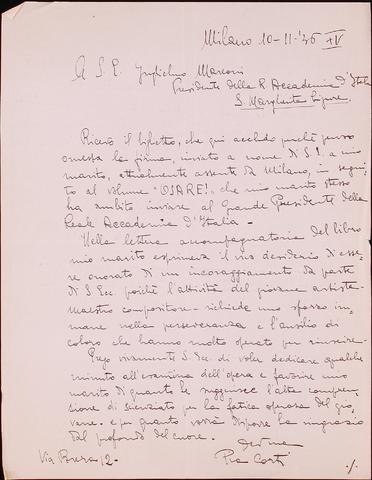 Milano 10-11-'36 XV
A S. E. Guglielmo Marconi
Presidente della R. Accademia d'Italia
S. Margherita Ligure
Ricevo il biglietto, che qui accludo perché
omessa la firma, inviato a nome di S.E. a mio
marito, attualmente assente da Milano, in segui-
to al volume "OSARE!", che mio marito stesso
ha ambito inviare al Grande Presidente della
Reale Accademia d'Italia -
Nella lettera accompagnatoria del libro
mio marito esprimeva il vivo desiderio d'esse-
re onorato di un incoraggiamento da parte
di S. Ecc. poiché l'attività del giovane artista-
maestro compositore - richiede uno sforzo im-
mane nella perseveranza e l'ausilio di
coloro che hanno molto operato per riuscire -
Prego vivamente S. Ecc. di voler dedicare qualche
minuto all'esamina dell'opera e favorire mio
marito di quanto le suggerisce l'alta compren-
sione di scienziato per la fatica operosa del gio-
vane - e per quanto vorrà disporre la ringrazio
dal profondo del cuore. -
Devma
Via Brera 12 - Pia Corti
./.